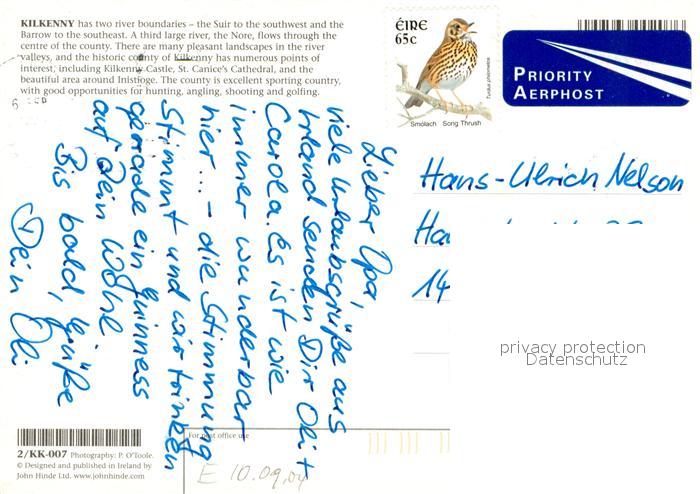 KILKENNY has two river boundaries – the Suir to the southwest and the
Barrow to the southeast. A third large river, the Nore, flows through the
centre of the county. There are many pleasant landscapes in the river
valleys, and the historic county of Kilkenny has numerous points of
interest, including Kilkenny Castle, St. Canice's Cathedral, and the
beautiful area around Inistioge. The county is excellent sporting country,
with good opportunities for hunting, angling, shooting and golfing.
ÉIRE
65c
Turdus philomelos
Smólach Song Thrush
PRIORITY
AERPHOST
Lieber Opa,
viele Urlaubsgrüße aus
Irland senden Dir Oli +
Carola. Es ist wie
immer wunderbar
hier... - die Stimmung
stimmt und wir trinken
gerade ein Guinness
auf Dein Wohl
Bis bald, Grüße
Dein Oli
Hans-Ulrich Nelson
Ha
14
privacy protection
Datenschutz
2/KK-007 Photography: P. O'Toole.
© Designed and published in Ireland by
John Hinde Ltd. www.johnhinde.com
For post office use
E 10.09.04